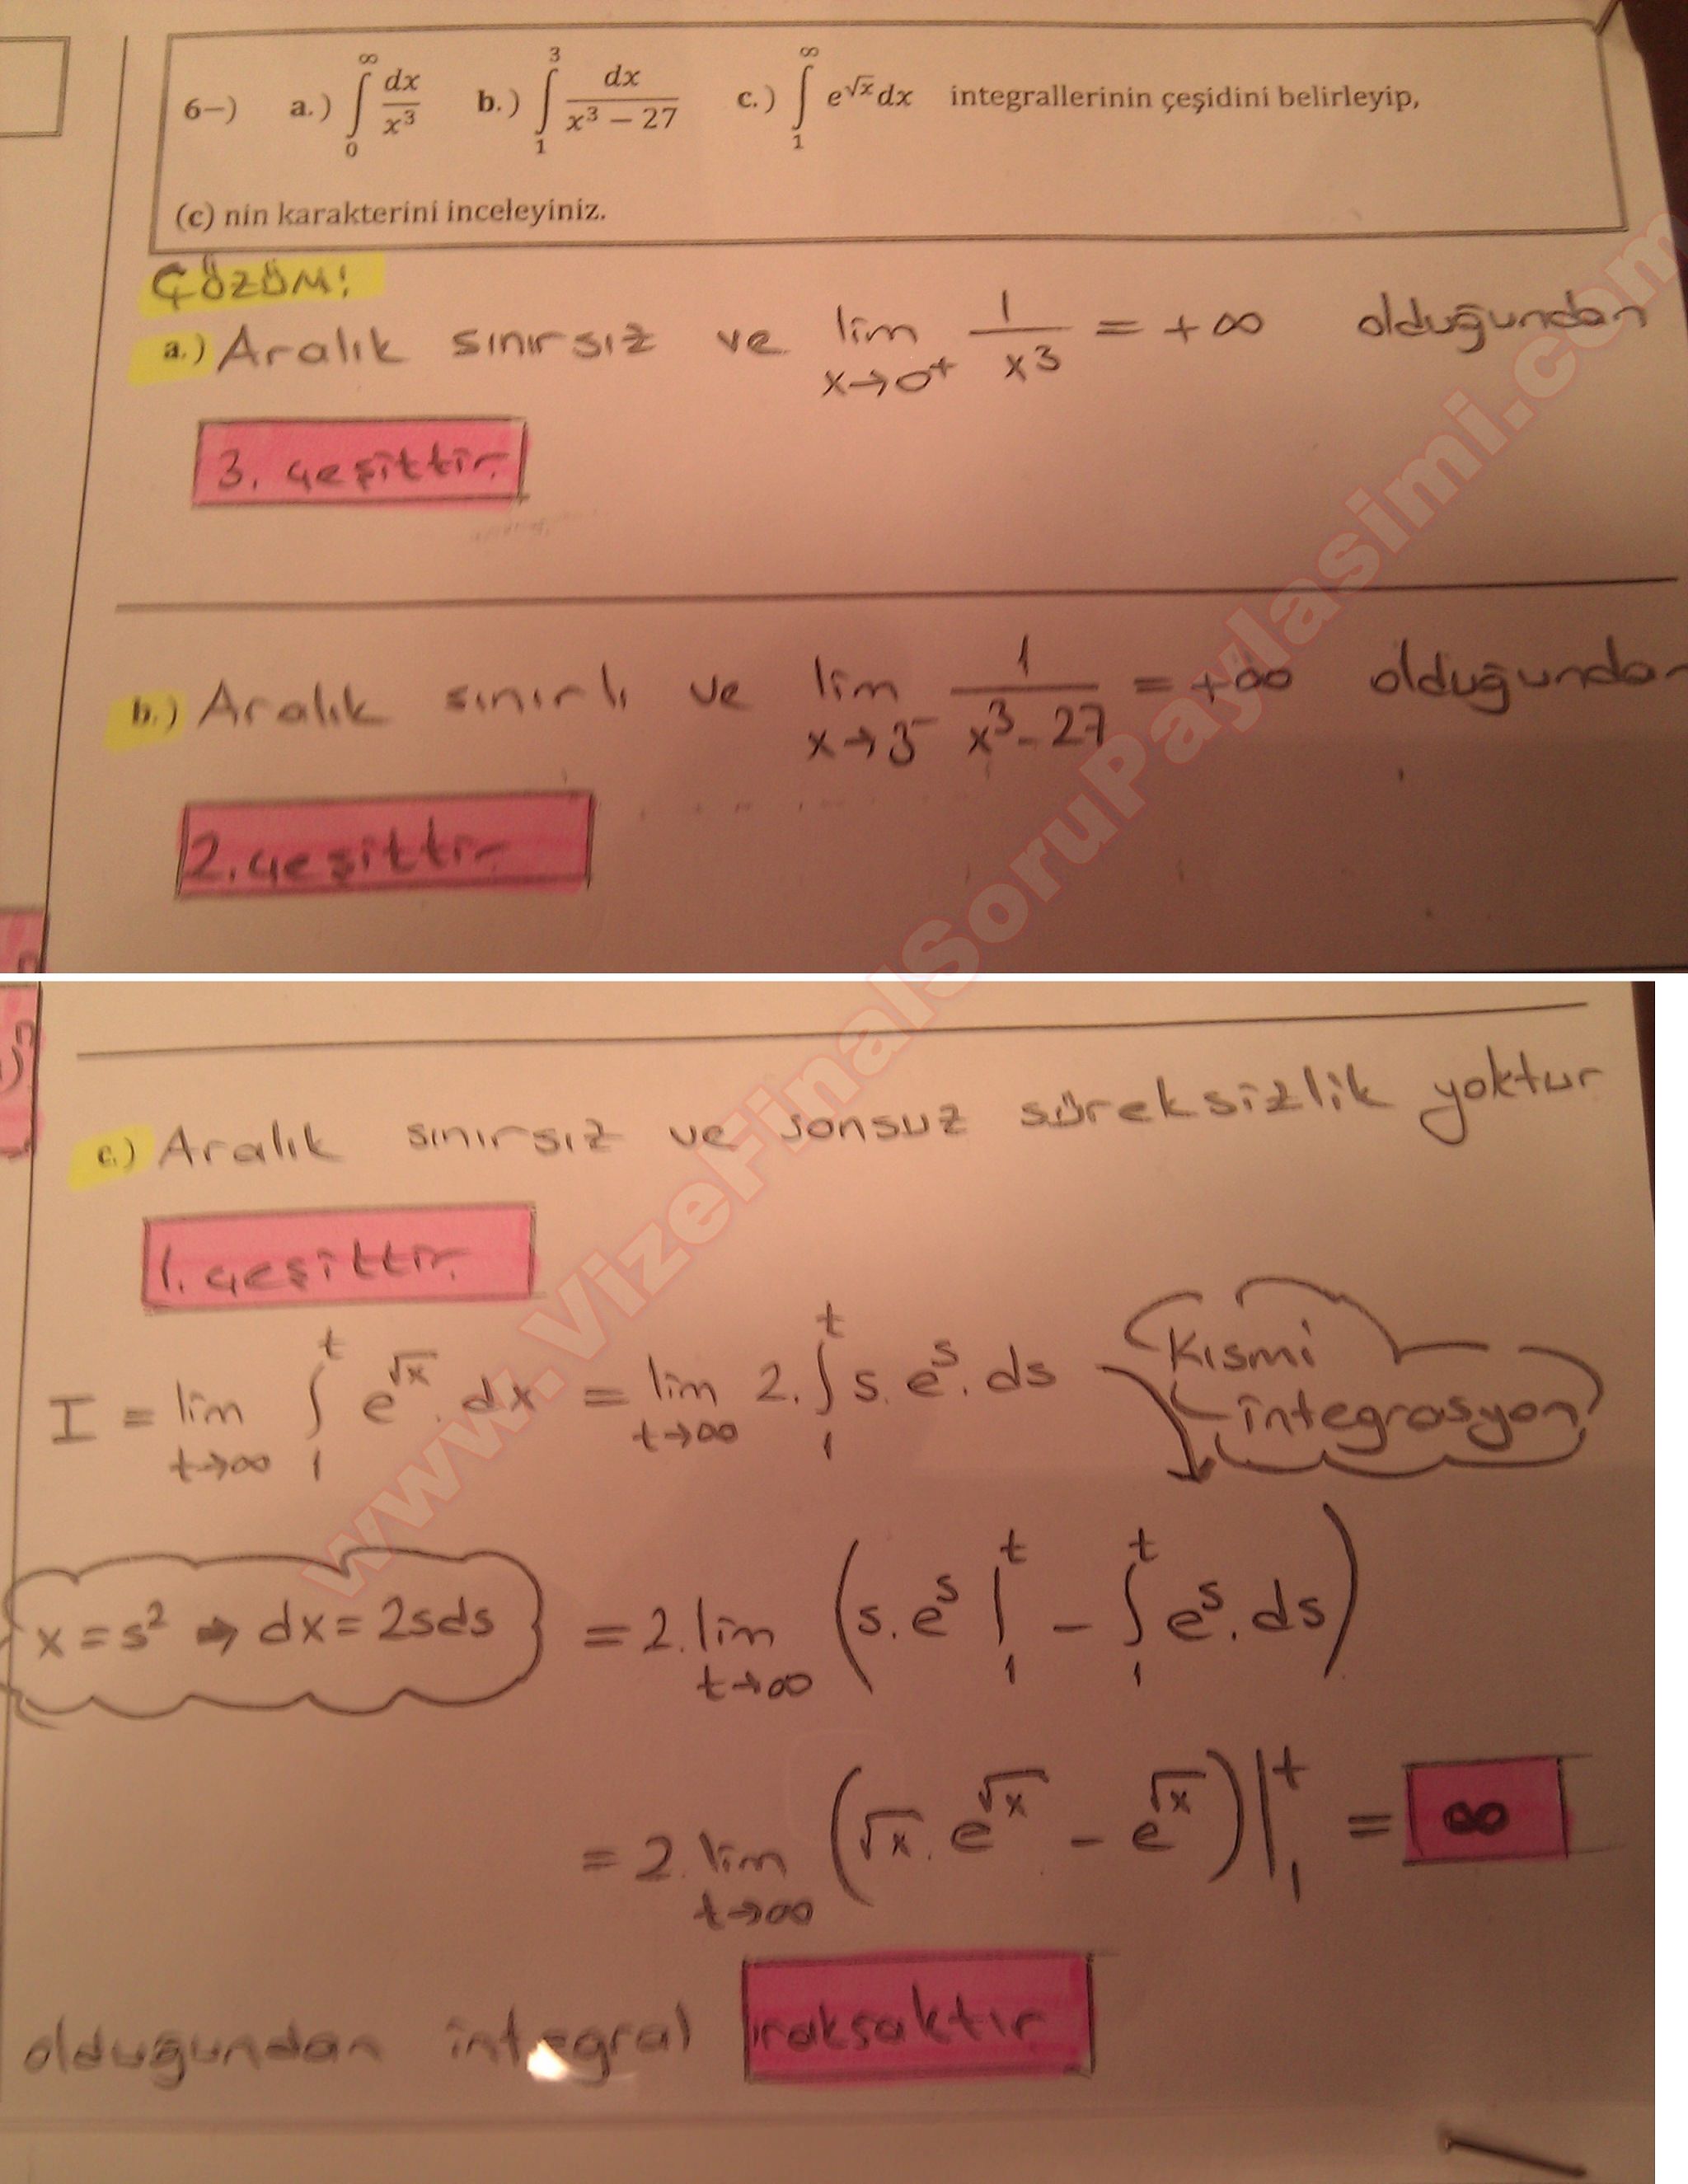 6-) a.) ∫₀^∞ dx/x³ b.) ∫₁³ dx/(x³ − 27) c.) ∫₁^∞ e^√x dx integrallerinin çeşidini belirleyip,
(c) nin karakterini inceleyiniz.
ÇÖZÜM:
a.) Aralık sınırsız ve lim x→0⁺ 1/x³ = +∞ olduğundan
3. çeşittir.
b.) Aralık sınırlı ve lim x→3⁻ 1/(x³-27) = +∞ olduğundan
2. çeşittir.
c.) Aralık sınırsız ve sonsuz süreksizlik yoktur
1. çeşittir.
I = lim t→∞ ∫₁^t e^√x . dx = lim t→∞ 2. ∫₁^t s. e^s. ds
Kısmi
integrasyon
x = s² ⇒ dx = 2sds
= 2. lim t→∞ (s. e^s |₁^t - ∫₁^t e^s. ds)
= 2. lim t→∞ (√x. e^√x - e^√x) |₁^t = ∞
olduğundan integral ıraksaktır
www.VizeFinalSoruPaylasimi.com